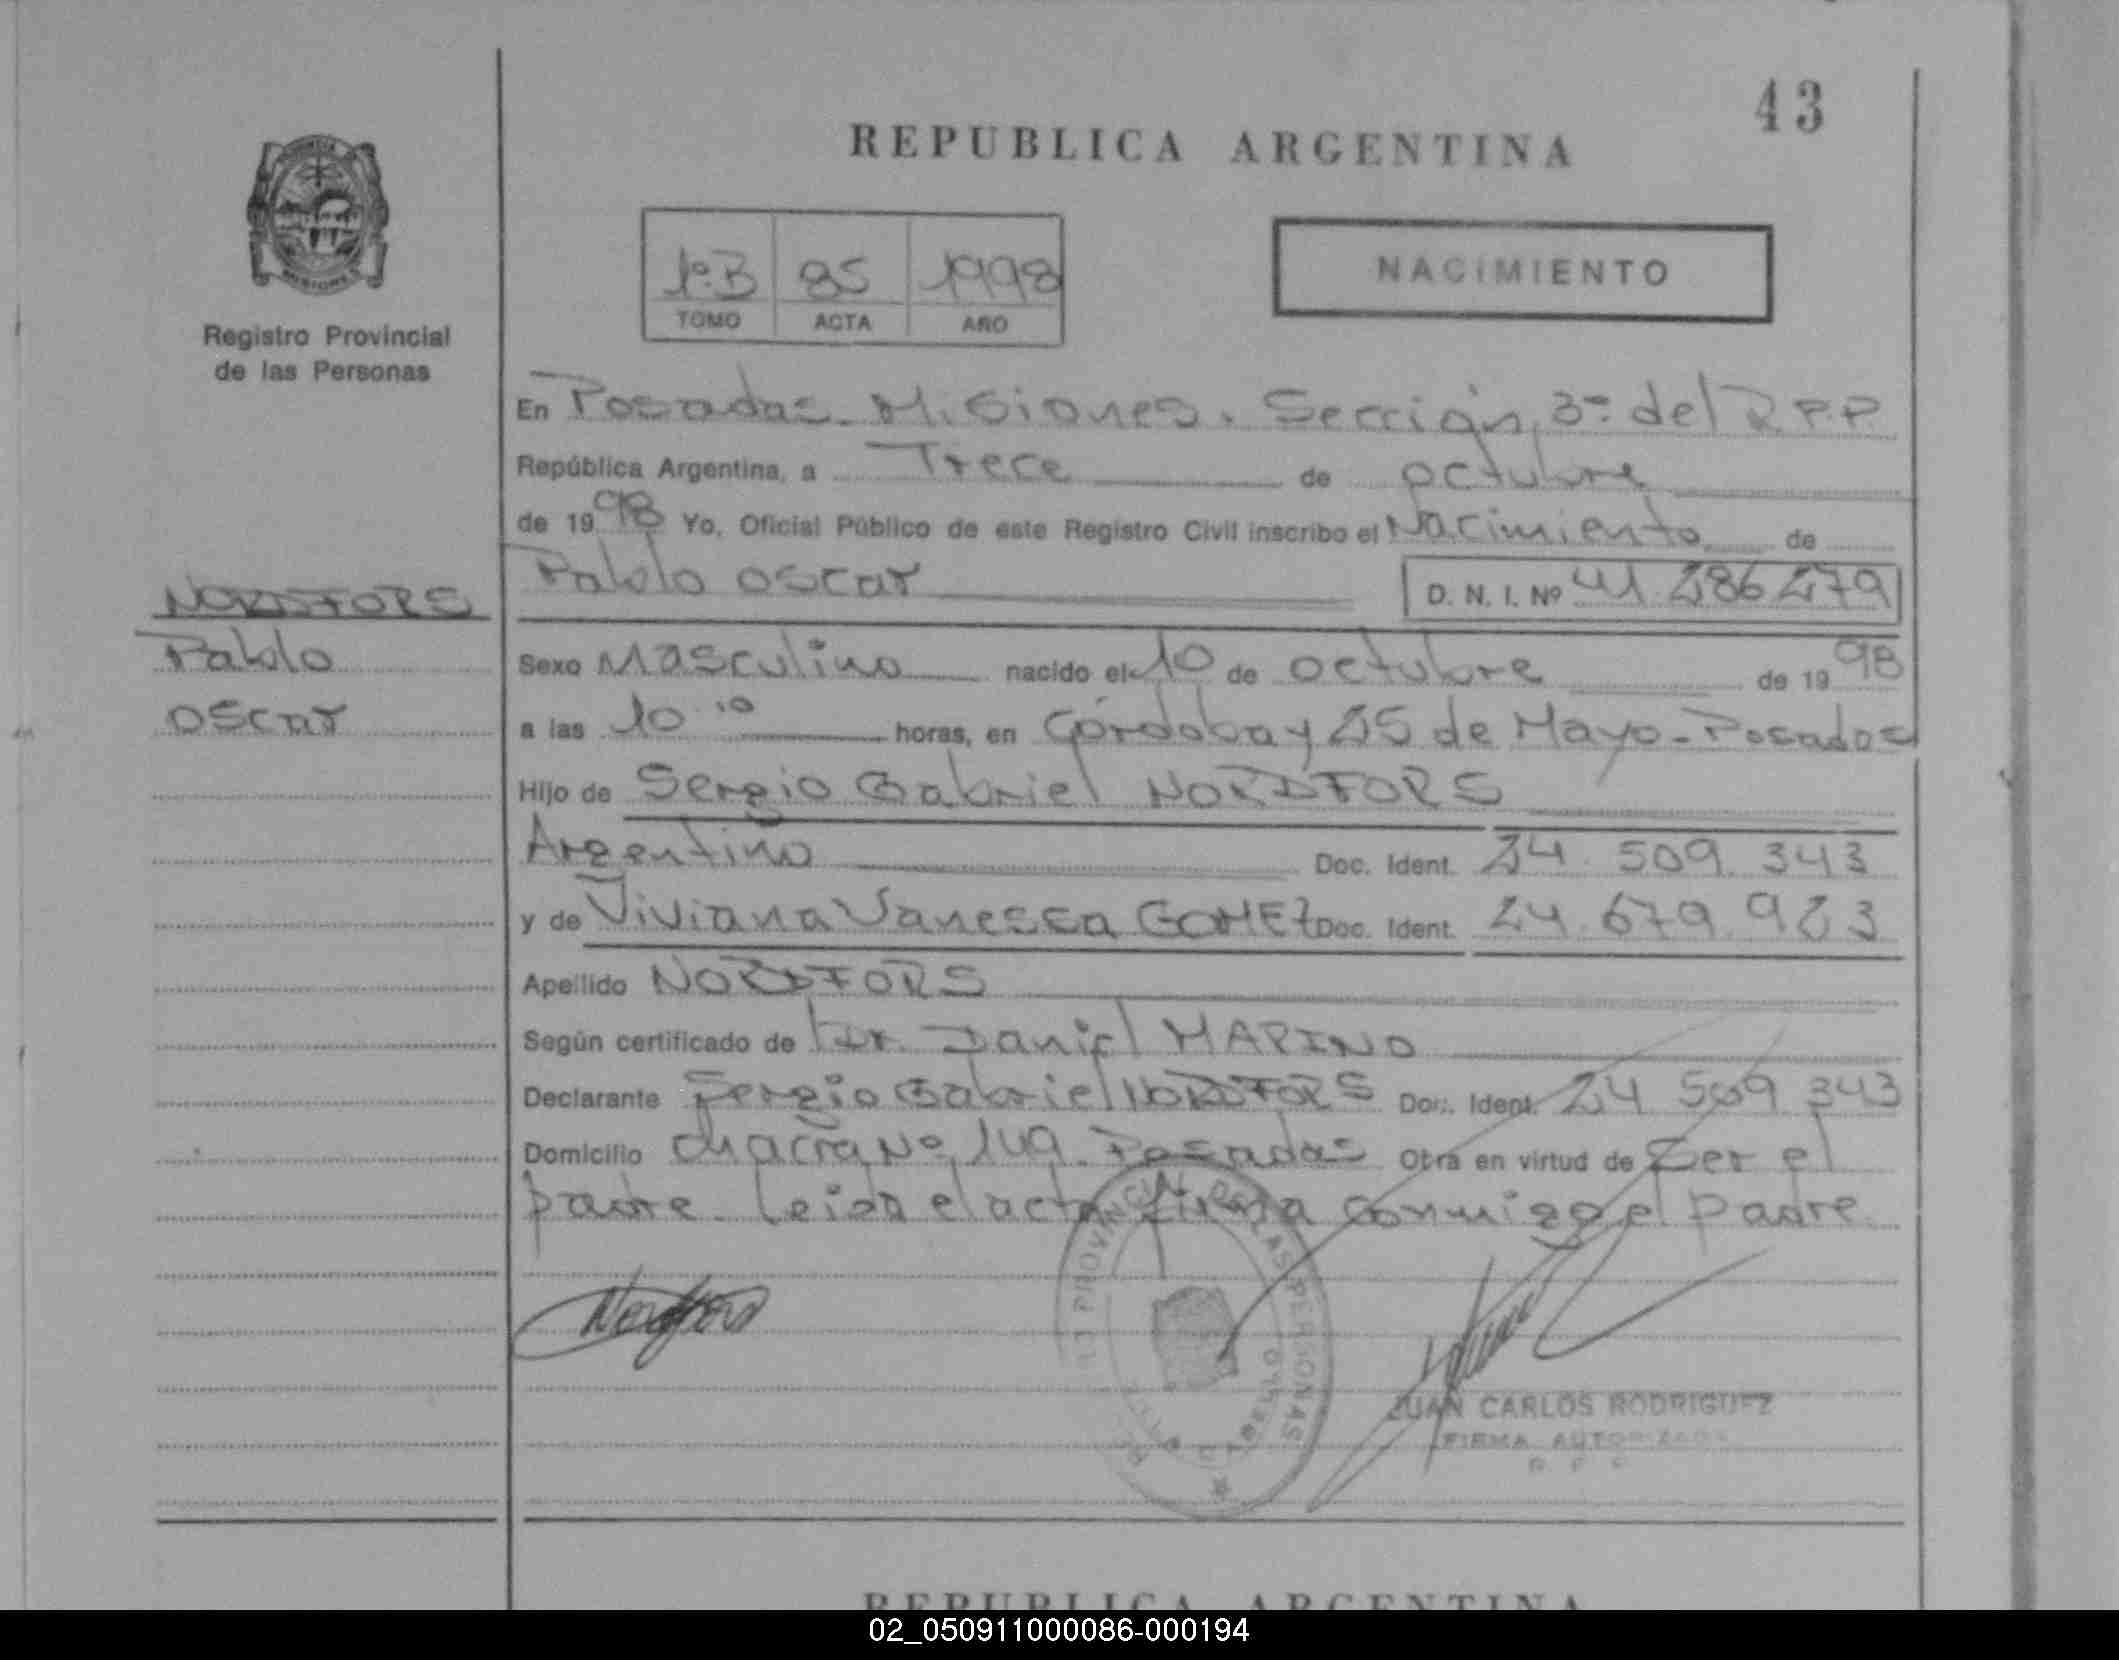 43
REPUBLICA ARGENTINA
1º B 85 1998
TOMO ACTA AÑO
NACIMIENTO
PROVINCIA
MISIONES
Registro Provincial
de las Personas
En Posadas - Misiones. Sección 3ª del R.P.P.
República Argentina, a Trece de octubre
de 1998 Yo, Oficial Público de este Registro Civil inscribo el Nacimiento de
Pablo Oscar D. N. I. Nº 41.286.279
NORDFORS
Pablo
Oscar
Sexo Masculino nacido el 10 de octubre de 1998
a las 10 10 horas, en Córdoba y 25 de Mayo - Posadas
Hijo de Sergio Gabriel NORDFORS
Argentino Doc. Ident. 24.509.343
y de Viviana Vanessa GOMEZ Doc. Ident. 24.679.923
Apellido NORDFORS
Según certificado de Dr. Daniel MARINO
Declarante Sergio Gabriel NORDFORS Doc. Ident. 24 509 343
Domicilio Chacra Nº 149 Posadas Obra en virtud de ser el
padre. Leida el acta firma conmigo el padre.
Nordfors
PROVINCIAL DE LAS PERSONAS
JUAN CARLOS RODRIGUEZ
FIRMA AUTORIZADA
REPUBLICA ARGENTINA
02_050911000086-000194